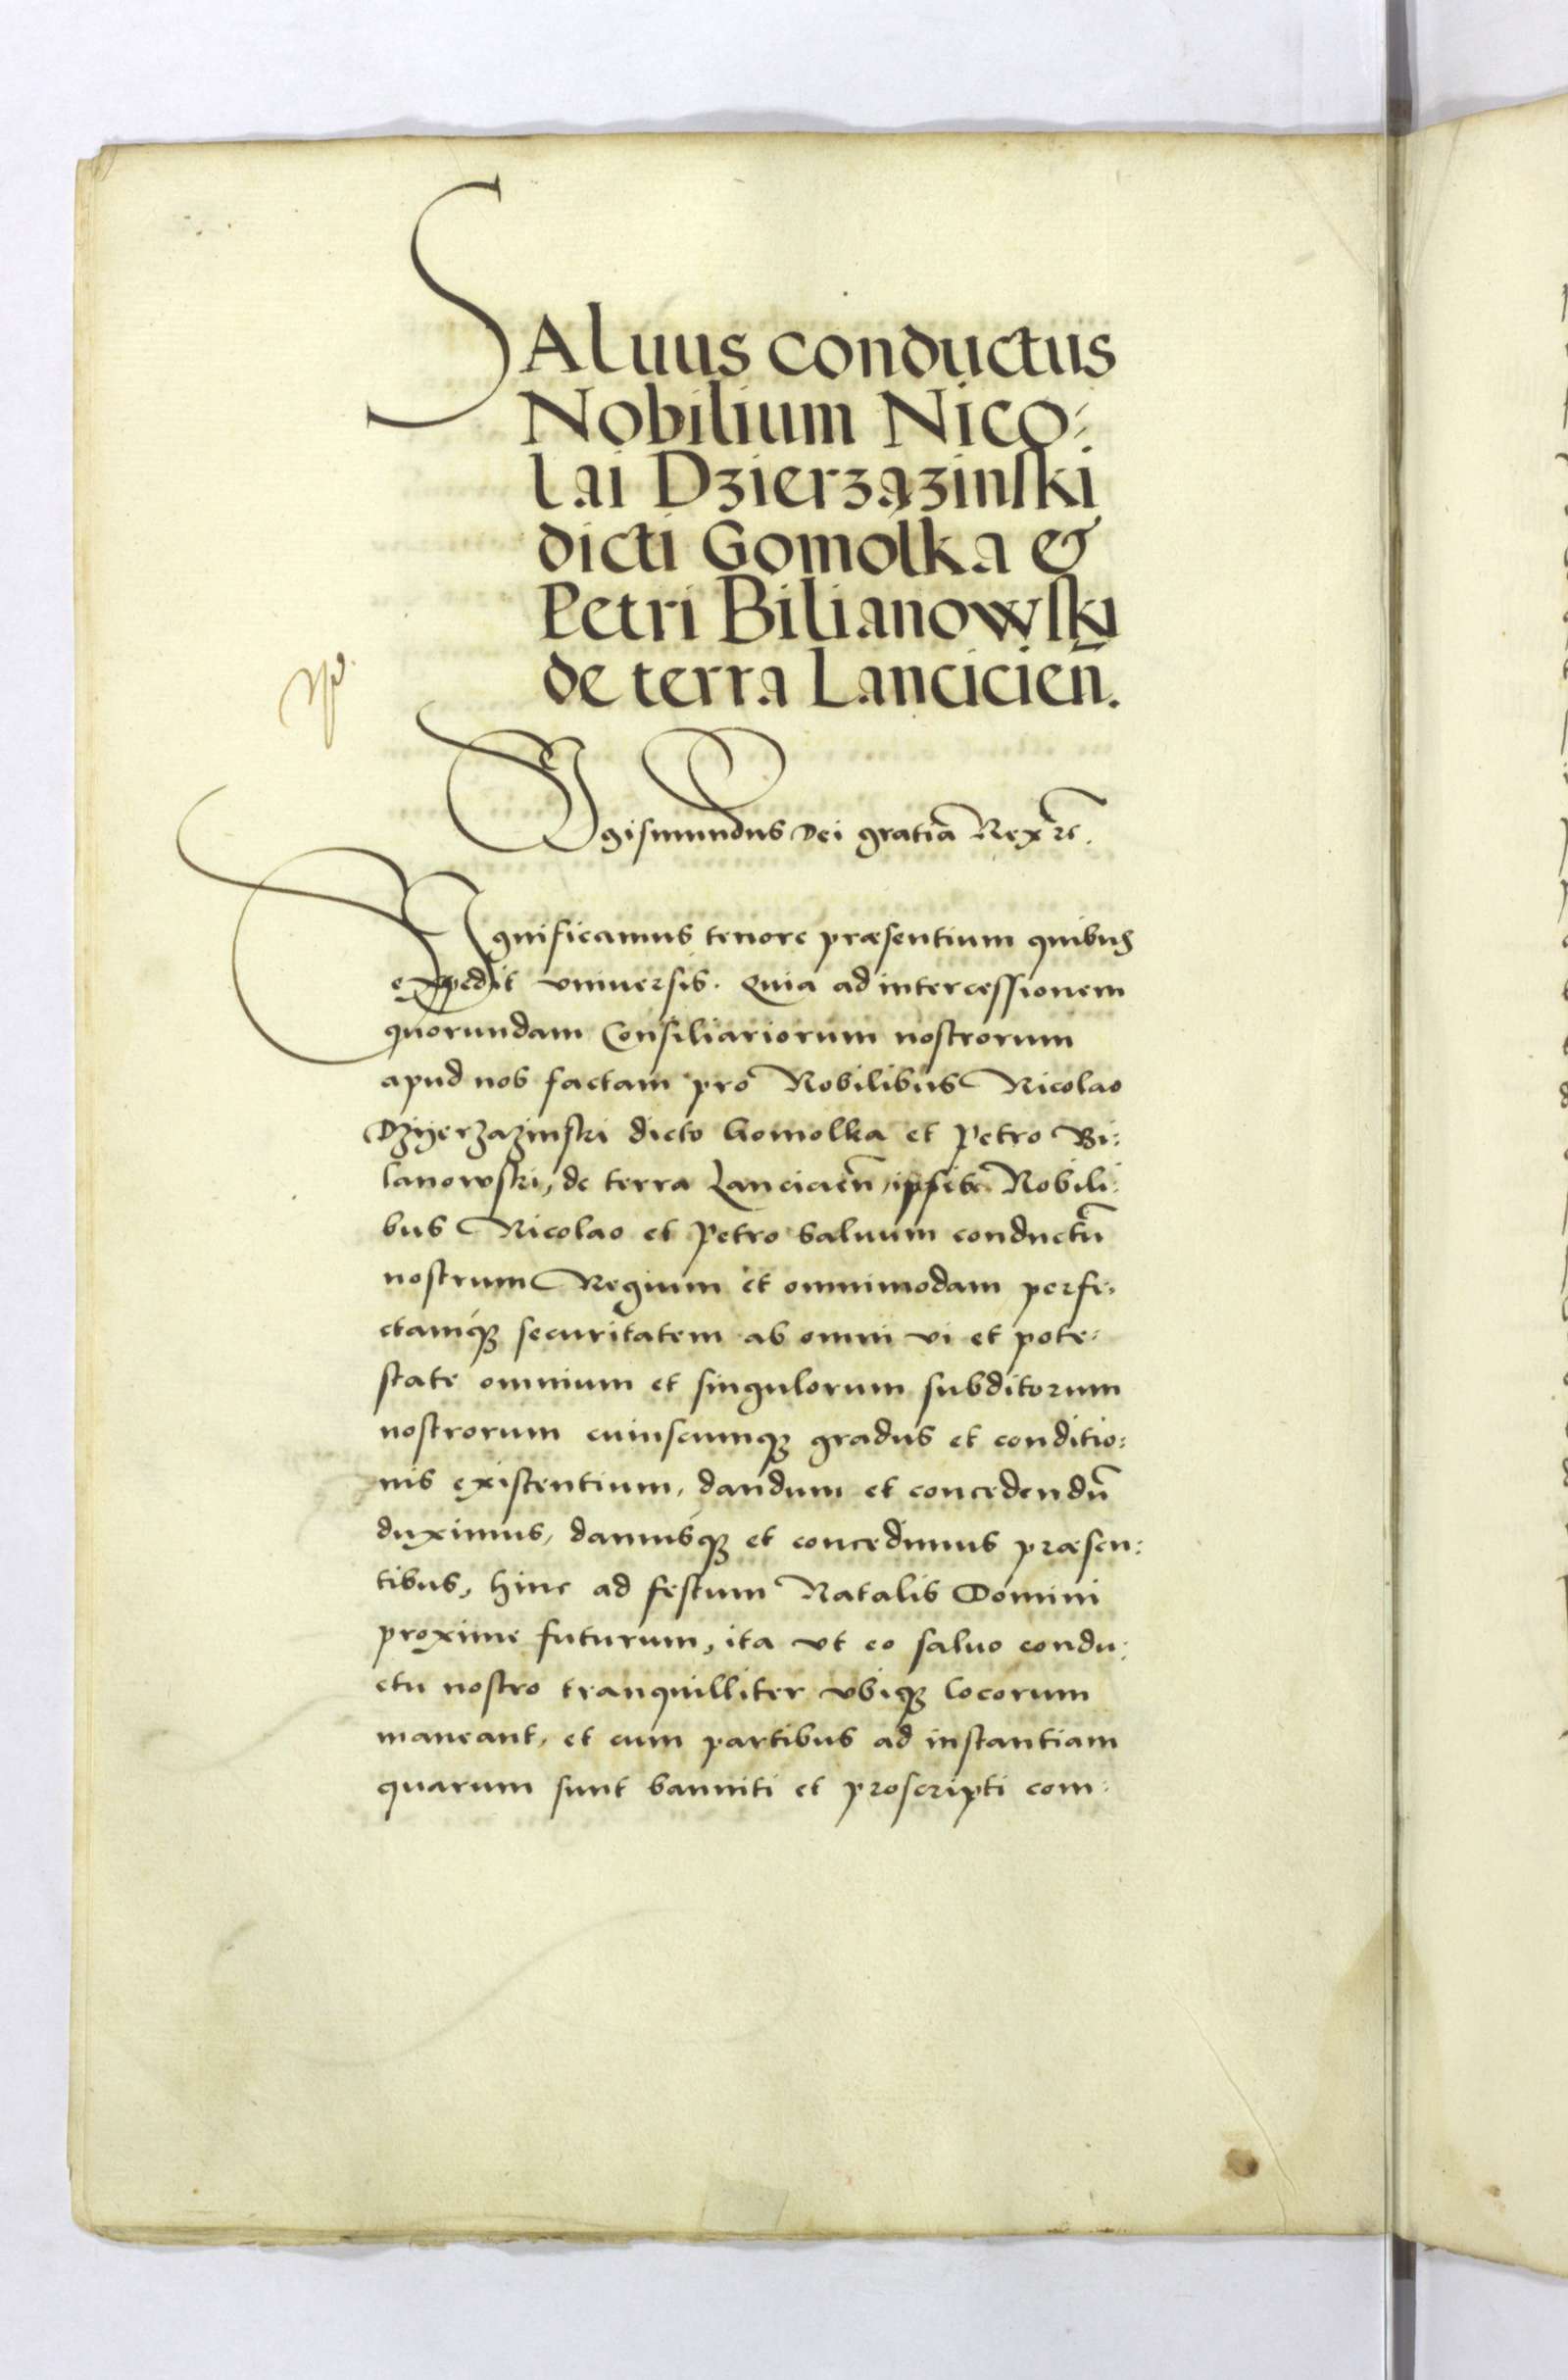 SAluus conductus
Nobilium Nico:
lai Dzierzązinski
dicti Gomolka &
Petri Bilianowski
de terra Lancicien̄.
Sigismundus Dei gratia Rex etc.
Significamus tenore præsentium quibus
expedit vniuersis. Quia ad intercessionem
quorundam Consiliariorum nostrorum
apud nos factam pro Nobilibus Nicolao
Dzijerzazinski dicto Gomolka et Petro Bi:
lanowski, de terra Lancicien̄, ipsis Nobili:
bus Nicolao et Petro saluum conductū
nostrum Regium et omnimodam perfe:
ctamq; securitatem ab omni vi et pote:
state omnium et singulorum subditorum
nostrorum cuiuscumq; gradus et conditio:
nis existentium, dandum et concedendū
duximus, damusq; et concedimus præsen:
tibus, hinc ad festum Natalis Domini
proxime futurum, ita vt eo saluo condu:
ctu nostro tranquilliter vbiq; locorum
maneant, et cum partibus ad instantiam
quarum sunt banniti et proscripti com: